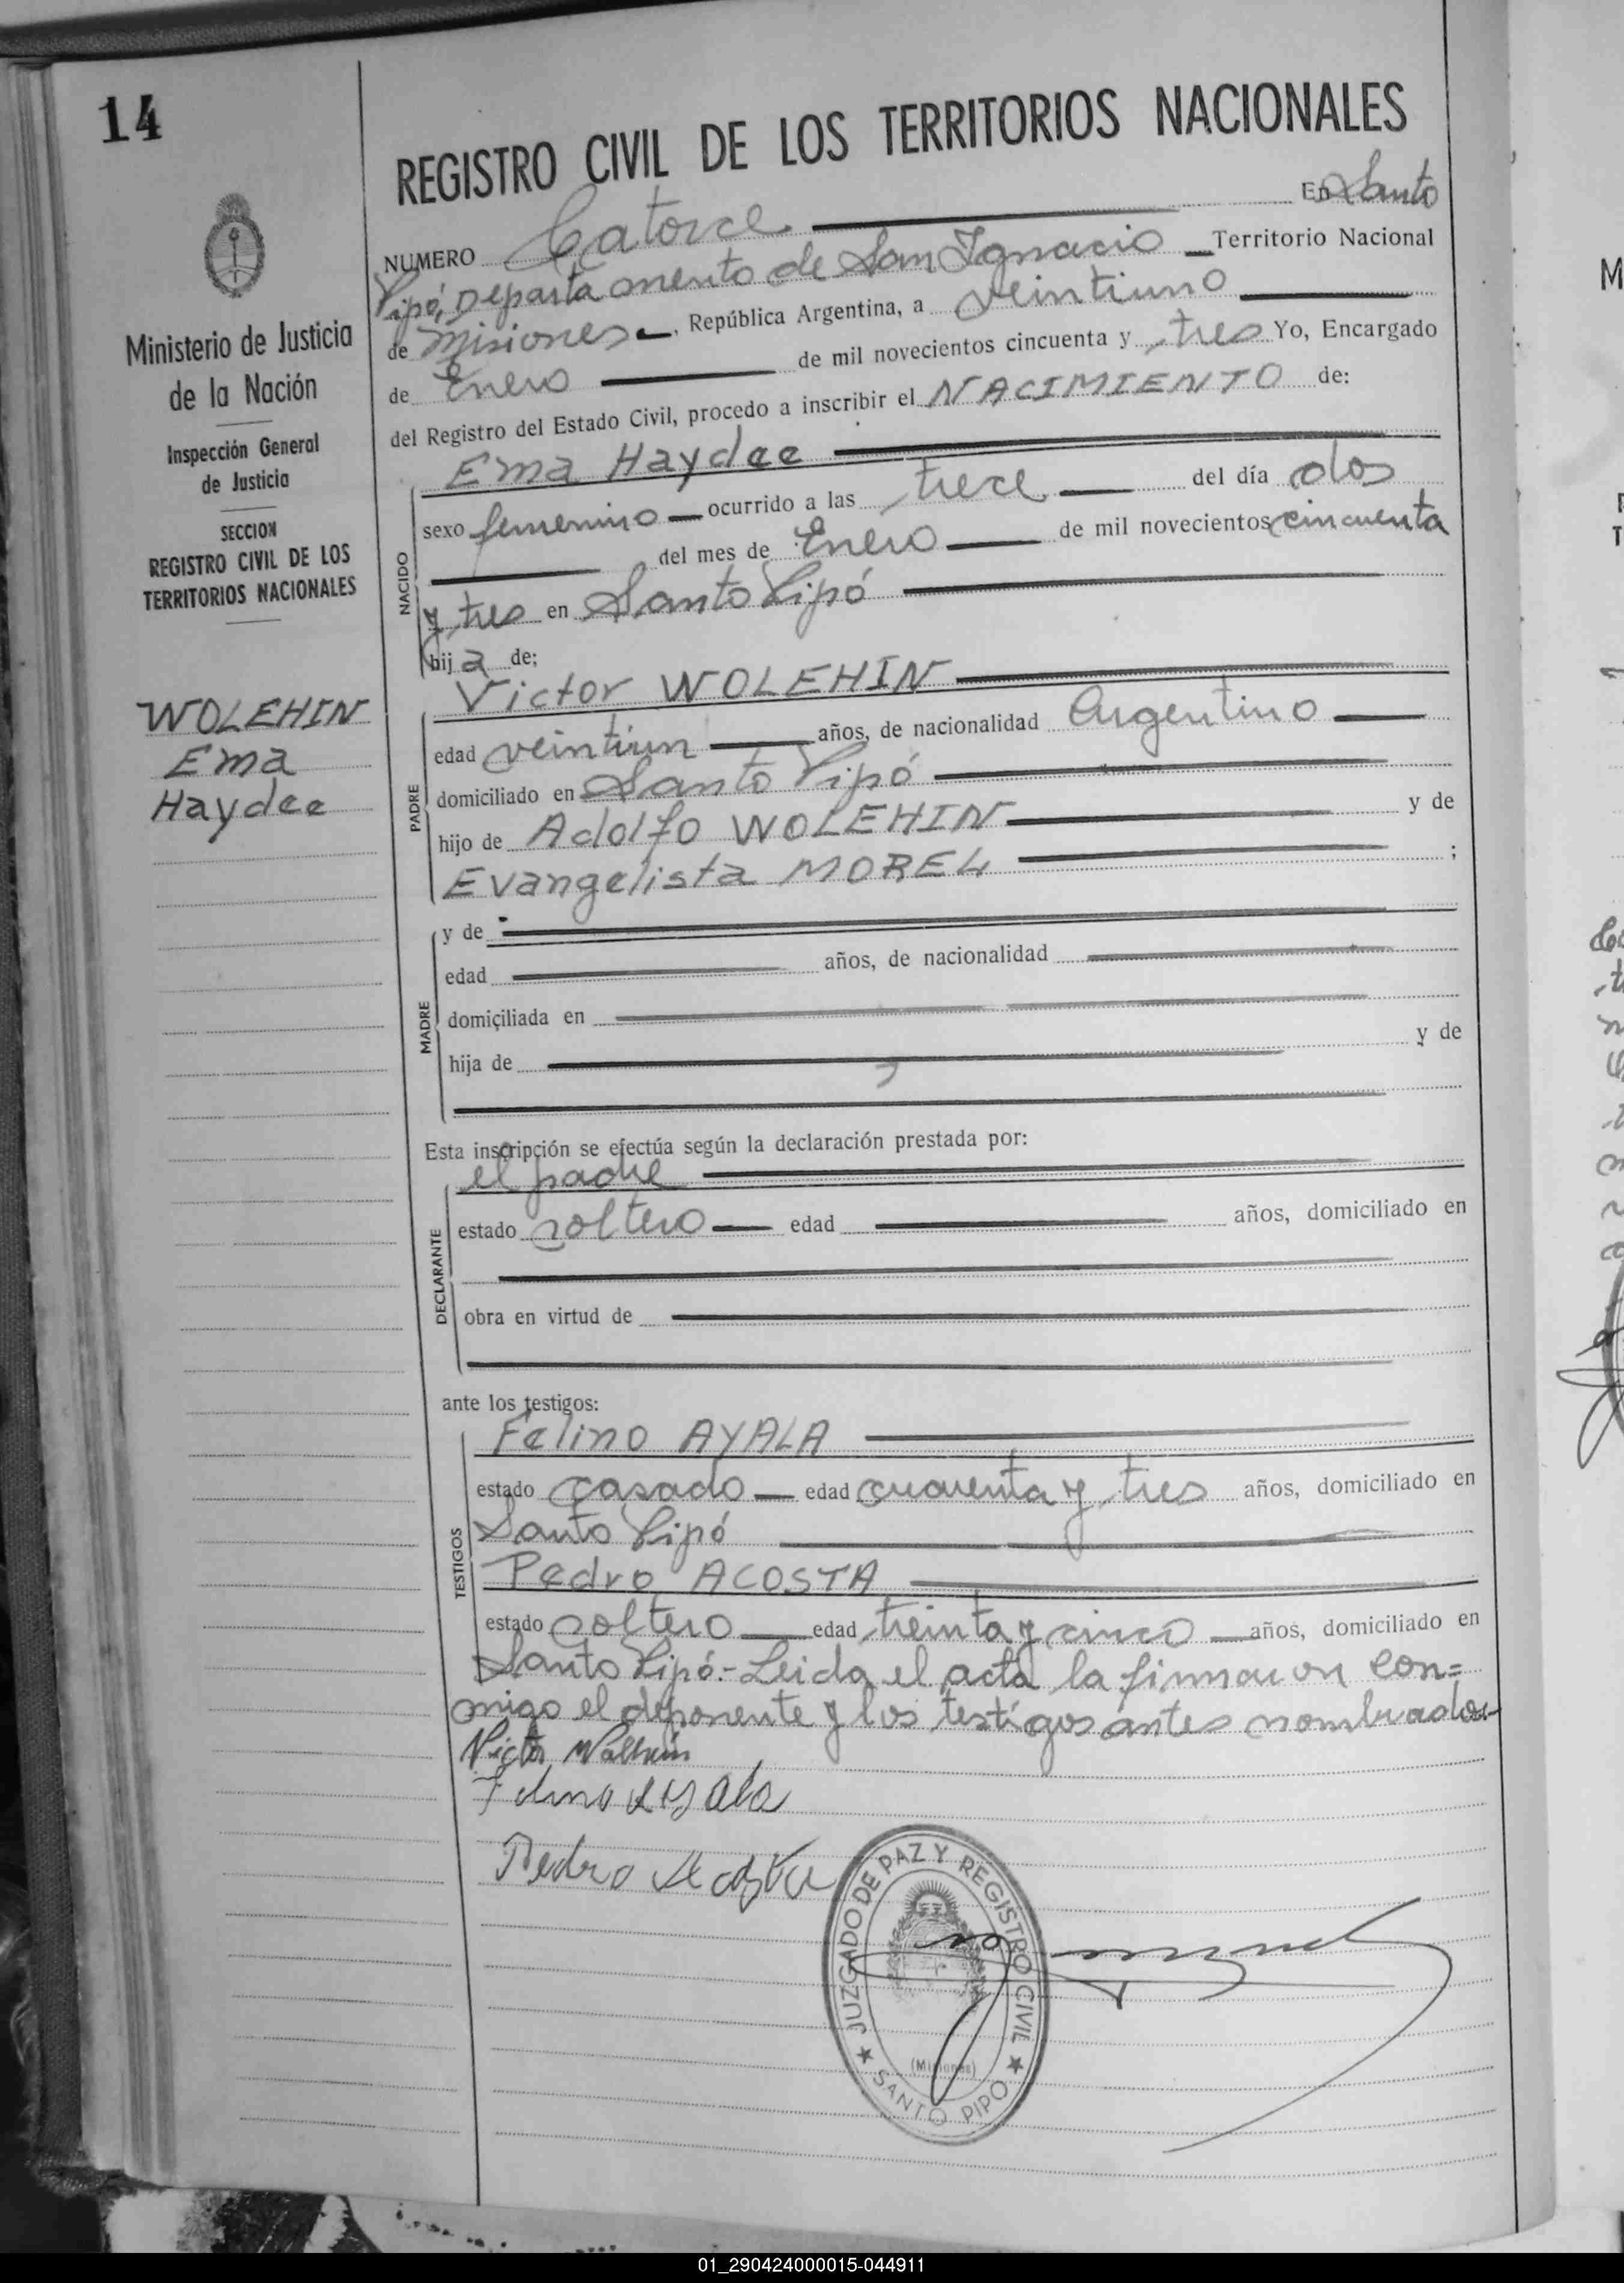 14
REGISTRO CIVIL DE LOS TERRITORIOS NACIONALES
NUMERO Catorce En Santo
Pipó, Departamento de San Ignacio Territorio Nacional
de Misiones, República Argentina, a veintiuno
de Enero de mil novecientos cincuenta y tres Yo, Encargado
del Registro del Estado Civil, procedo a inscribir el NACIMIENTO de:
Ministerio de Justicia
de la Nación
Inspección General
de Justicia
SECCION
REGISTRO CIVIL DE LOS
TERRITORIOS NACIONALES
WOLEHIN
Ema
Haydee
NACIDO
Ema Haydee
sexo femenino ocurrido a las trece del día dos
del mes de Enero de mil novecientos cincuenta
y tres en Santo Pipó
hija de;
PADRE
Victor WOLEHIN
edad veintiun años, de nacionalidad Argentino
domiciliado en Santo Pipó
hijo de Adolfo WOLEHIN y de
Evangelista MOREL ;
MADRE
y de
edad años, de nacionalidad
domiciliada en
hija de y de
Esta inscripción se efectúa según la declaración prestada por:
DECLARANTE
el padre
estado soltero edad años, domiciliado en
obra en virtud de
ante los testigos:
TESTIGOS
Felino AYALA
estado casado edad cuarenta y tres años, domiciliado en
Santo Pipó
Pedro ACOSTA
estado soltero edad treinta y cinco años, domiciliado en
Santo Pipó.- Leida el acta la firmaron con=
migo el deponente y los testigos antes nombrados
Victor Wolehin
Felino Ayala
Pedro Acosta
JUZGADO DE PAZ Y REGISTRO CIVIL
(Misiones)
★ SANTO PIPO ★
01_290424000015-044911